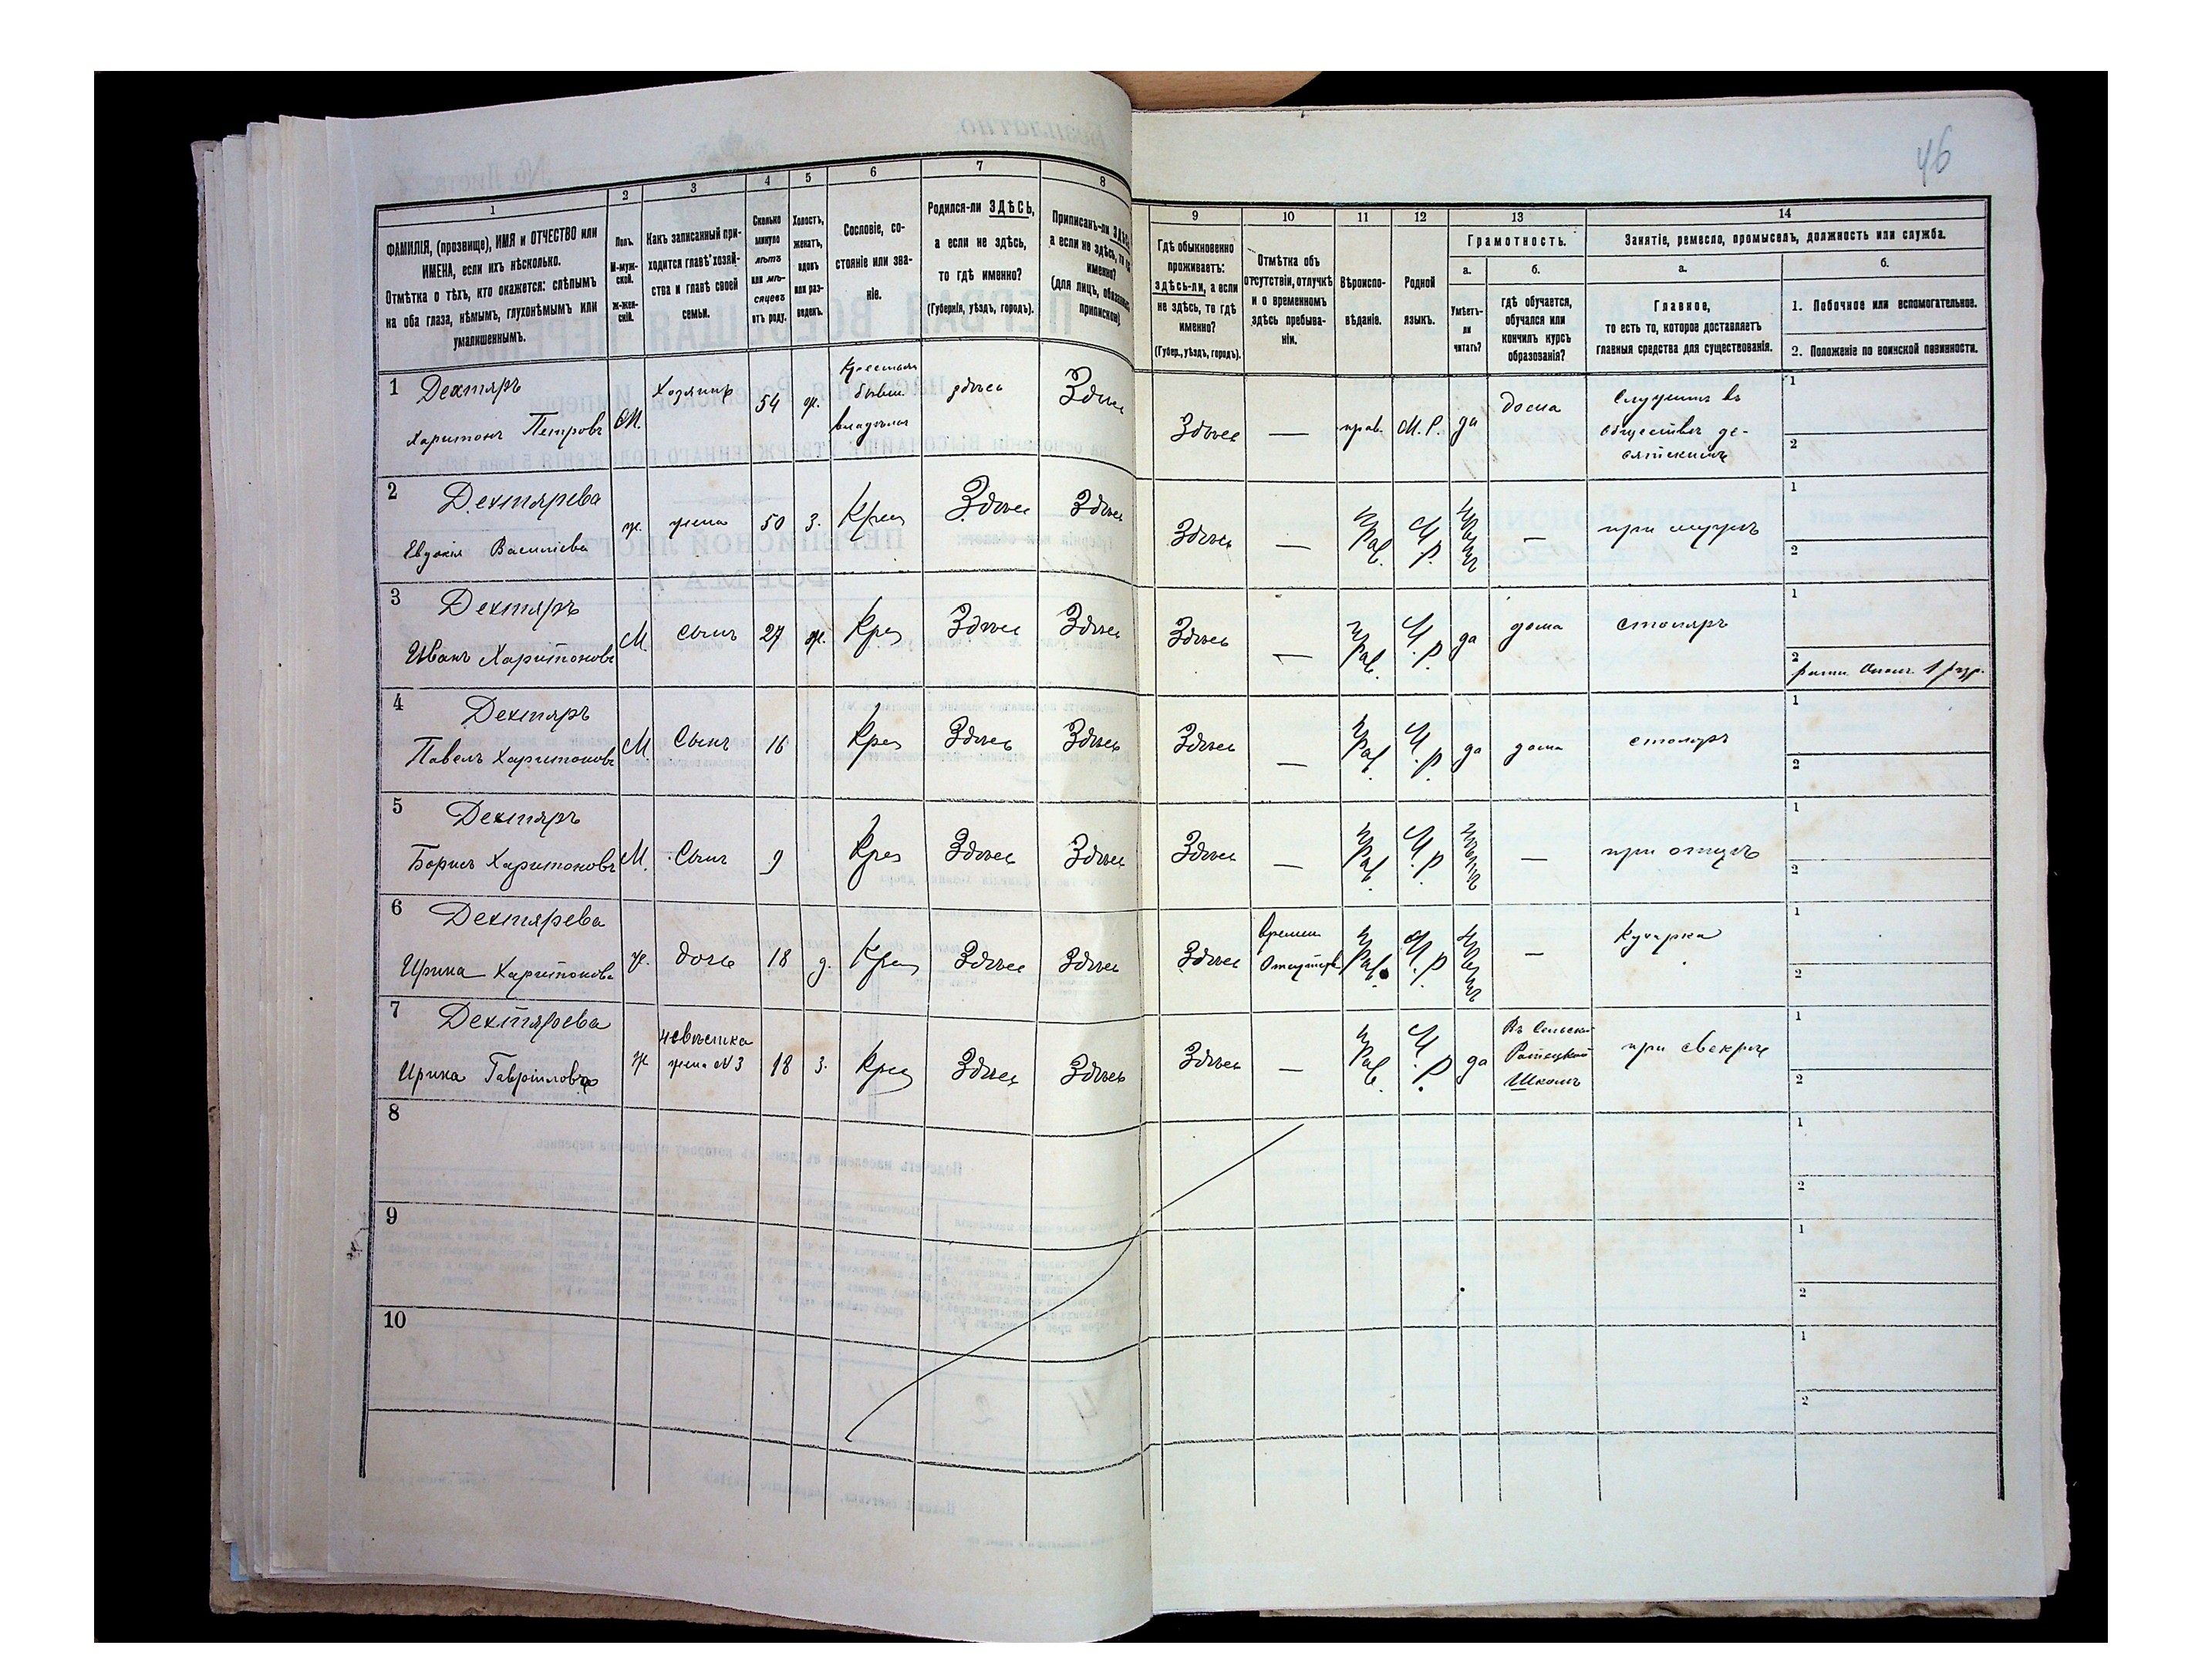 46
1 2 3 4 5 6 7 8
ФАМИЛІЯ, (прозвище), ИМЯ и ОТЧЕСТВО или
ИМЕНА, если ихъ нѣсколько.
Отмѣтка о тѣхъ, кто окажется: слѣпымъ
на оба глаза, нѣмымъ, глухонѣмымъ или
умалишеннымъ.
Полъ.
М-муж-
ской.
Ж-жен-
скій.
Какъ записанный при-
ходится главѣ хозяй-
ства и главѣ своей
семьи.
Сколько
минуло
лѣтъ
или мѣ-
сяцевъ
отъ роду.
Холостъ,
женатъ,
вдовъ
или раз-
веденъ.
Сословіе, со-
стояніе или зва-
ніе.
Родился-ли ЗДѢСЬ,
а если не здѣсь,
то гдѣ именно?
(Губернія, уѣздъ, городъ).
Приписанъ-ли
а если не здѣсь,
именно?
(для лицъ,
припискою)
9 10 11 12 13 14
Гдѣ обыкновенно
проживаетъ:
здѣсь-ли, а если
не здѣсь, то гдѣ
именно?
(Губер., уѣздъ, городъ).
Отмѣтка объ
отсутствіи, отлучкѣ
и о временномъ
здѣсь пребыва-
ніи.
Вѣроиспо-
вѣданіе.
Родной
языкъ.
Грамотность.
а.
Умѣетъ-
ли
читать?
б.
гдѣ обучается,
обучался или
кончилъ курсъ
образованія?
Занятіе, ремесло, промыселъ, должность или служба.
а.
Главное,
то есть то, которое доставляетъ
главныя средства для существованія.
б.
1. Побочное или вспомогательное.
2. Положеніе по воинской повинности.
1 Дехтяръ
Харитонъ Петровъ М. Хозяинъ 54 ж. Крестьян бывш. владѣльч здѣсь Здѣсь Здѣсь — прав. М. Р. да дома Служитъ въ
обществѣ де-
сятскимъ
1
2
2 Дехтярева
Евдокія Василіева ж. жена 50 з. Крес Здѣсь Здѣсь Здѣсь — Прав. М. р. — при мужѣ
1
2
3 Дехтяръ
Иванъ Харитоновъ М. сынъ 27 ж. Крес Здѣсь Здѣсь Здѣсь — Прав. М. р. да дома столяръ
1
2 ратн. опол. 1 разр.
4 Дехтяръ
Павелъ Харитоновъ М. Сынъ 16 Крес Здѣсь Здѣсь Здѣсь — Прав. М. р. да дома столяръ
1
2
5 Дехтяръ
Борисъ Харитоновъ М. Сынъ 9 Крес Здѣсь Здѣсь Здѣсь — Прав. М. р — при отцѣ
1
2
6 Дехтярева
Ирина Харитонова ж. дочь 18 д. Крес Здѣсь Здѣсь Здѣсь времен. Прав. М. р — Кухарка
1
2
7 Дехтярева
Ирина Гавріилова ж невѣстка
жена №3 18 з. Крес Здѣсь Здѣсь Здѣсь — Прав. М. р. да Въ Сельской
Школѣ при свекрѣ
1
2
8
1
2
9
1
2
10
1
2